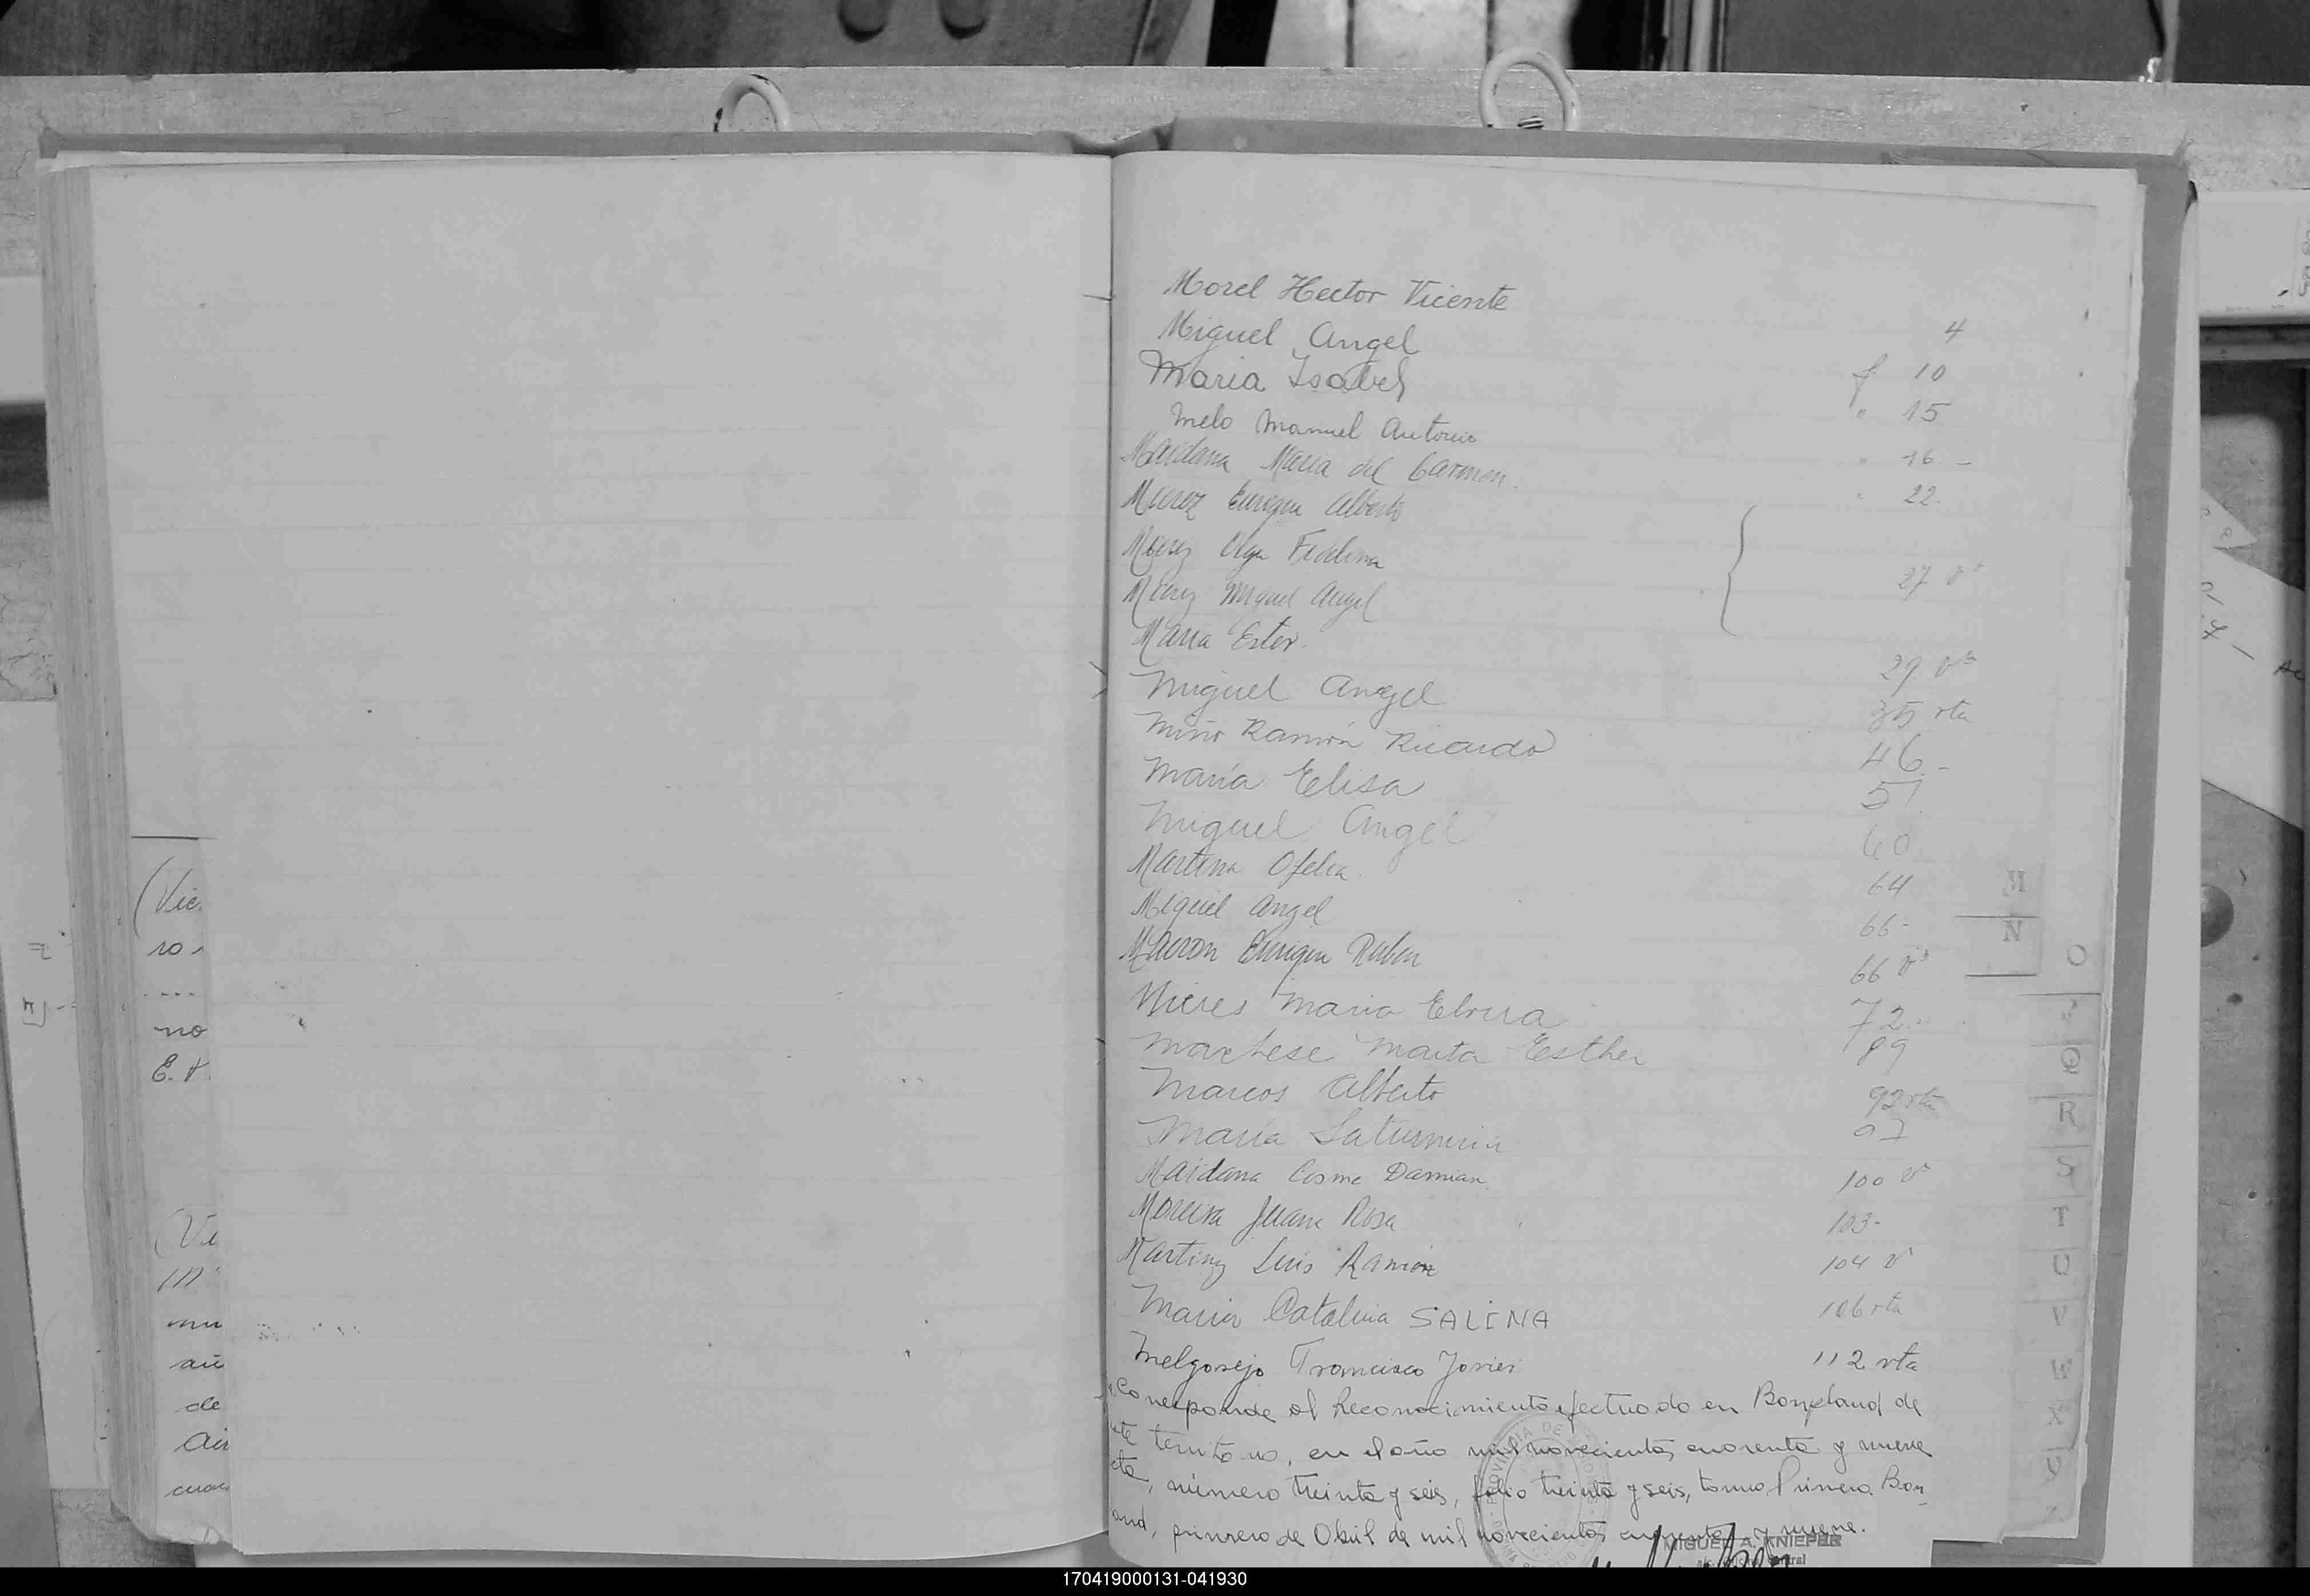 Morel Hector Vicente 4
Miguel Angel f 10
Maria Isabel " 15
Melo Manuel Antonio " 16 -
Maidana Maria del Carmen. " 22.
Enrique Alberto
Olga Fidelina 27 vº
Miguel Angel
Maria Ester. 29 vta
Miguel Angel 35 vta
Miño Ramón Ricardo 46.-
María Elisa 51
Miguel Angel 60
Martina Ofelia. 64
Miguel Angel 66-
Enrique Ruben 66 vº
Nieres Maria Elvira 72.-
Marchese Marta Esther 89
Marcos Alberto 92 vta
María Saturnina 97
Maidana Cosme Damian. 100 v
Moreira Juana Rosa 103-
Martinez Luis Ramón 104 v
Maria Catalina SALINA 106 vta
Melgarejo Francisco Javier 112 vta
Corresponde al Reconocimiento efectuado en Bonpland de
este territorio, en el año mil novecientos cuarenta y nueve
acta, número treinta y seis, folio treinta y seis, tomo Primero. Bon-
land, primero de Abril de mil novecientos cuarenta y nueve.
MIGUEL A. KNIEPER
(Vic.
ro
no
E. V.
(Vi
m
mu
añ
de
Air
cuar
M
N
O
Q
R
S
T
U
V
W
X
Y
170419000131-041930